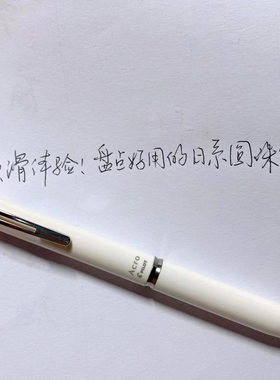 滑体验！盘点好用的日系圆珠
Acro
PILOT